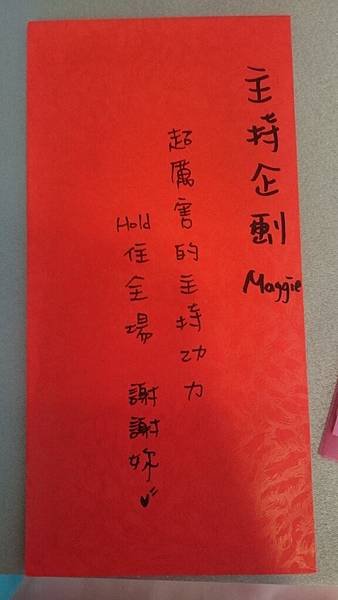 主持企劃 Maggie
超厲害的主持功力
Hold住全場 謝謝妳